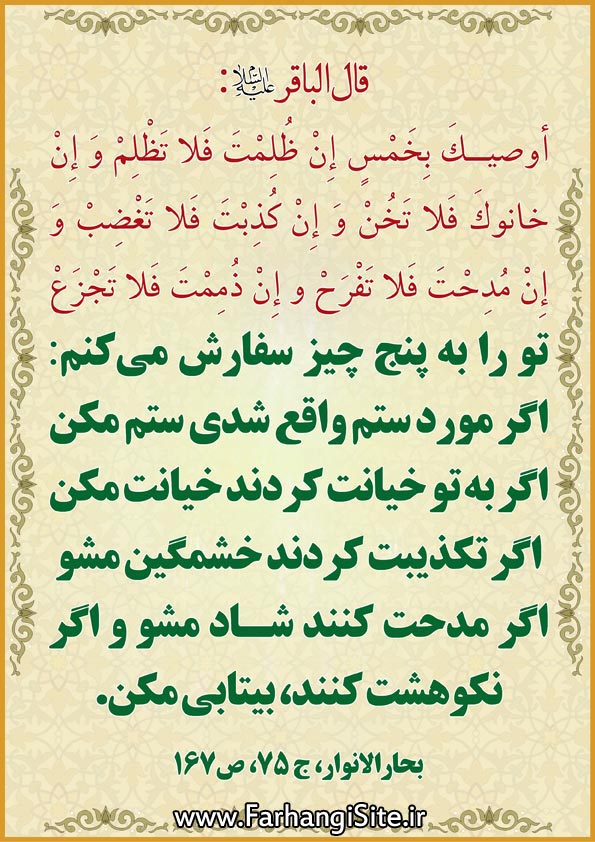 قال الباقر علیه السلام :
أوصیـــكَ بِخَمْسٍ إِنْ ظُلِمْتَ فَلا تَظْلِمْ وَ إِنْ
خانوكَ فَلا تَخُنْ وَ إِنْ كُذِبْتَ فَلا تَغْضِبْ وَ
إِنْ مُدِحْتَ فَلا تَفْرَحْ و إِنْ ذُمِمْتَ فَلا تَجْزَعْ
تو را به پنج چیز سفارش می‌کنم:
اگر مورد ستم واقع شدی ستم مکن
اگر به تو خیانت کردند خیانت مکن
اگر تکذیبت کردند خشمگین مشو
اگر مدحت کنند شــاد مشو و اگر
نکوهشت کنند، بیتابی مکن.
بحارالانوار، ج ۷۵، ص۱۶۷
www.FarhangiSite.ir